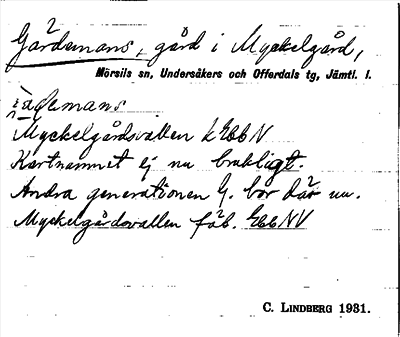 Gårdemans, gård i Myckelgård,
Mörsils sn, Undersåkers och Offerdals tg, Jämtl. l.
Myckelgårdsvallen k Ebb N
Kartnamnet ej nu brukligt.
Andra generationen G. bor där nu.
Myckelgårdsvallen fäb. Ebb NV
C. LINDBERG 1931.